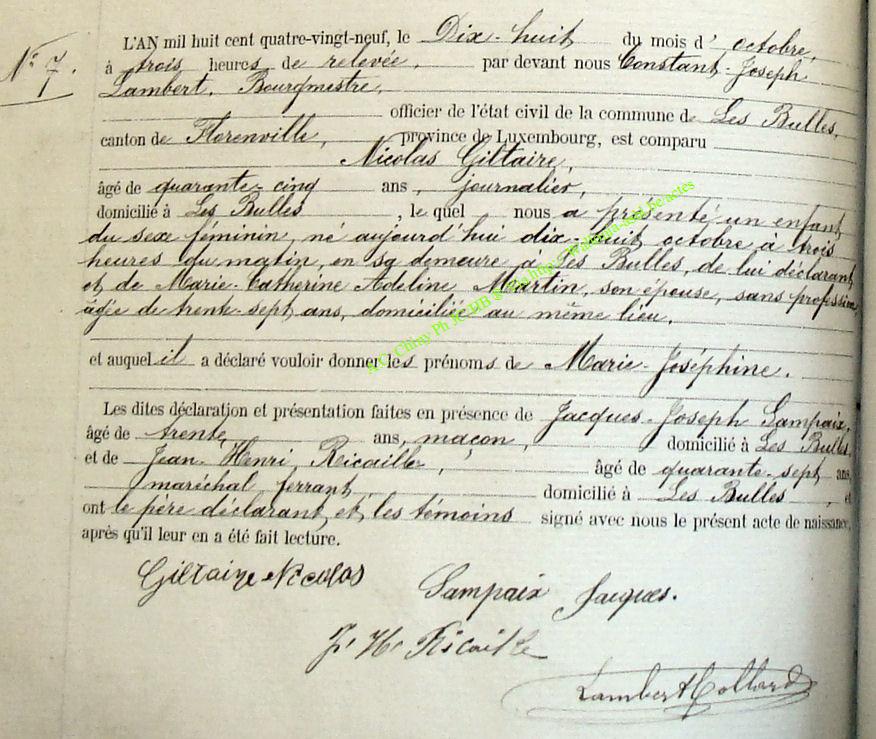 N° 7.
L'AN mil huit cent quatre-vingt-neuf, le Dix-huit du mois d' octobre,
à trois heures de relevée, par devant nous Constant-Joseph
Lambert, Bourgmestre,
officier de l'état civil de la commune de Les Bulles,
canton de Florenville, province de Luxembourg, est comparu
Nicolas Giltaire,
âgé de quarante-cinq ans, journalier,
domicilié à Les Bulles, le quel nous a présenté un enfant
du sexe féminin, né aujourd'hui dix-huit octobre à trois
heures du matin, en sa demeure à Les Bulles, de lui déclarant
et de Marie-Catherine Adeline Martin, son épouse, sans profession
âgée de trente-sept ans, domiciliée au même lieu,
et auquel il a déclaré vouloir donner les prénoms de Marie-Joséphine.
Les dites déclaration et présentation faites en présence de Jacques-Joseph Sampaix,
âgé de trente ans, maçon, domicilié à Les Bulles
et de Jean-Henri Ricaille, âgé de quarante-sept ans
maréchal ferrant, domicilié à Les Bulles, et
ont le père déclarant et les témoins signé avec nous le présent acte de naissance,
après qu'il leur en a été fait lecture.
Giltaire Nicolas
Sampaix Jacques.
J. H. Ricaille
Lambert Collard